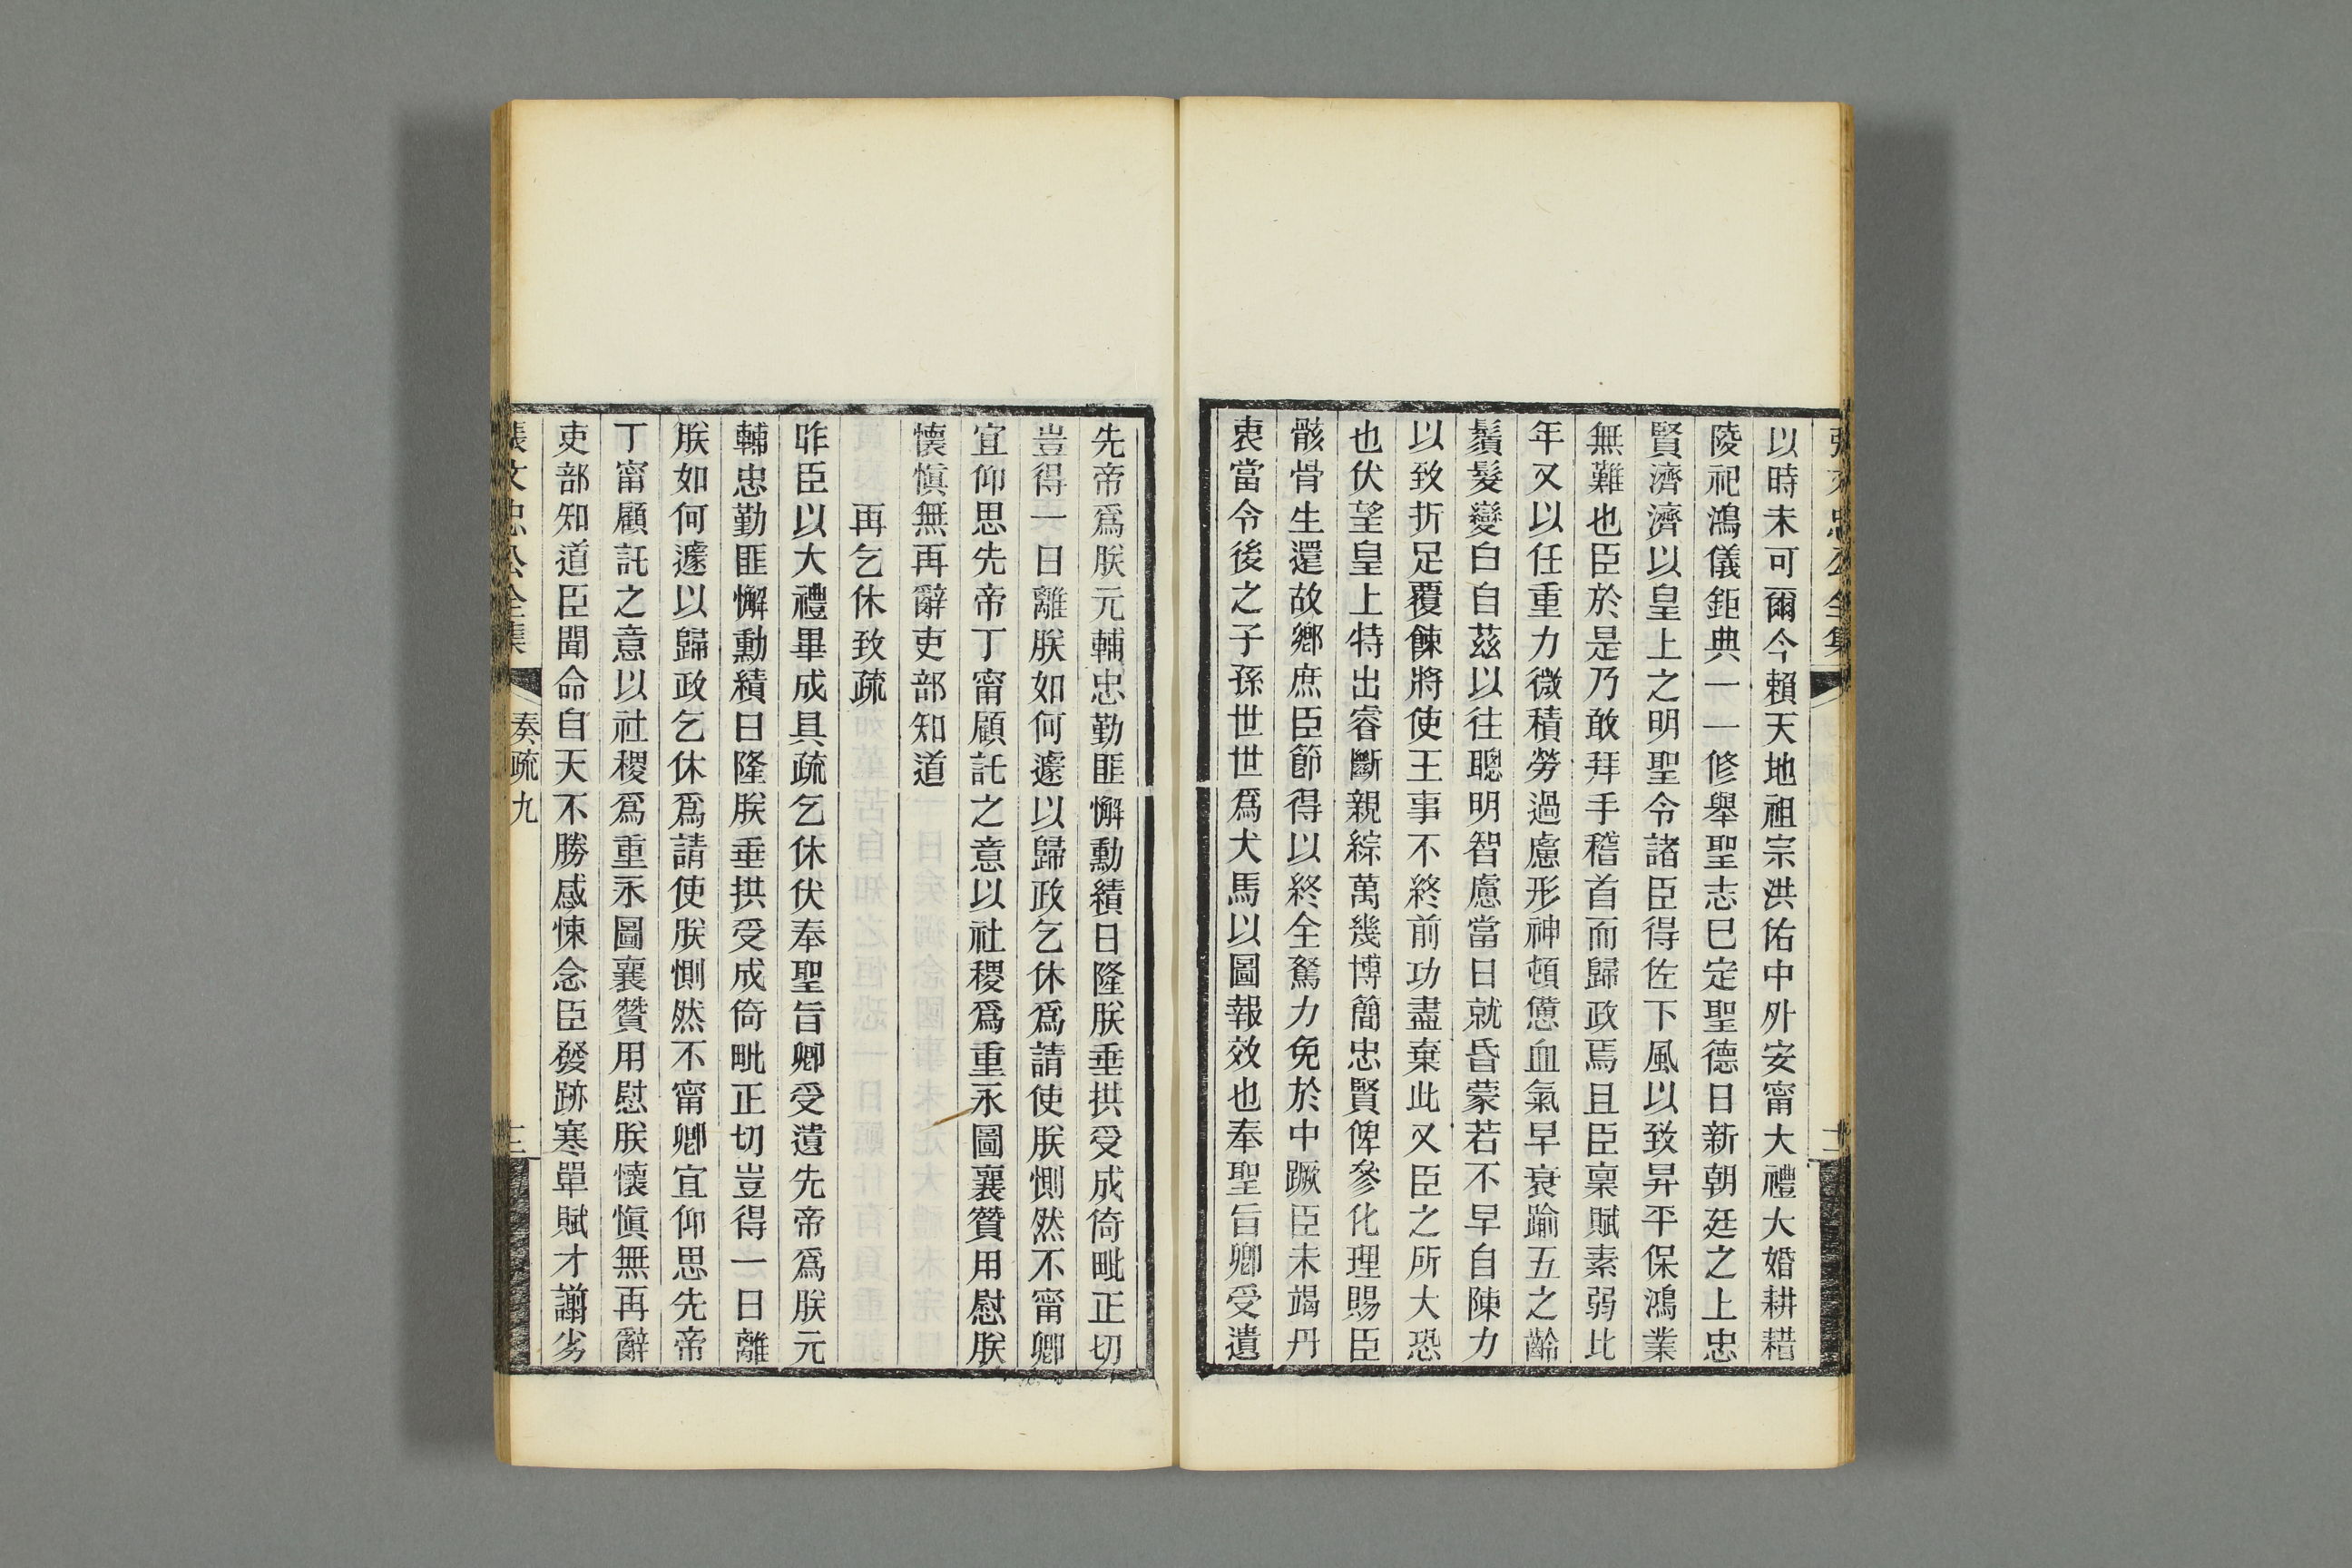 張文忠公全集
以時未可爾今賴天地祖宗洪佑中外安甯大禮大婚耕耤
陵祀鴻儀鉅典一一修舉聖志巳定聖德日新朝廷之上忠
賢濟濟以皇上之明聖令諸臣得佐下風以致昇平保鴻業
無難也臣於是乃敢拜手稽首而歸政焉且臣稟賦素弱比
年又以任重力微積勞過慮形神頓憊血氣早衰踰五之齡
鬚髮變白自茲以往聰明智慮當日就昏蒙若不早自陳力
以致折足覆餗將使王事不終前功盡棄此又臣之所大恐
也伏望皇上特出睿斷親綜萬幾博簡忠賢俾參化理賜臣
骸骨生還故鄉庶臣節得以終全駑力免於中蹶臣未竭丹
衷當令後之子孫世世爲犬馬以圖報效也奉聖旨卿受遺
先帝爲朕元輔忠勤匪懈勳績日隆朕垂拱受成倚毗正切
豈得一日離朕如何遽以歸政乞休爲請使朕惻然不甯卿
宜仰思先帝丁甯顧託之意以社稷爲重永圖襄贊用慰朕
懷愼無再辭吏部知道
再乞休致疏
昨臣以大禮畢成具疏乞休伏奉聖旨卿受遺先帝爲朕元
輔忠勤匪懈勳績日隆朕垂拱受成倚毗正切豈得一日離
朕如何遽以歸政乞休爲請使朕惻然不甯卿宜仰思先帝
丁甯顧託之意以社稷爲重永圖襄贊用慰朕懷愼無再辭
吏部知道臣聞命自天不勝感悚念臣發跡寒單賦才譾劣
張文忠公全集 奏疏九